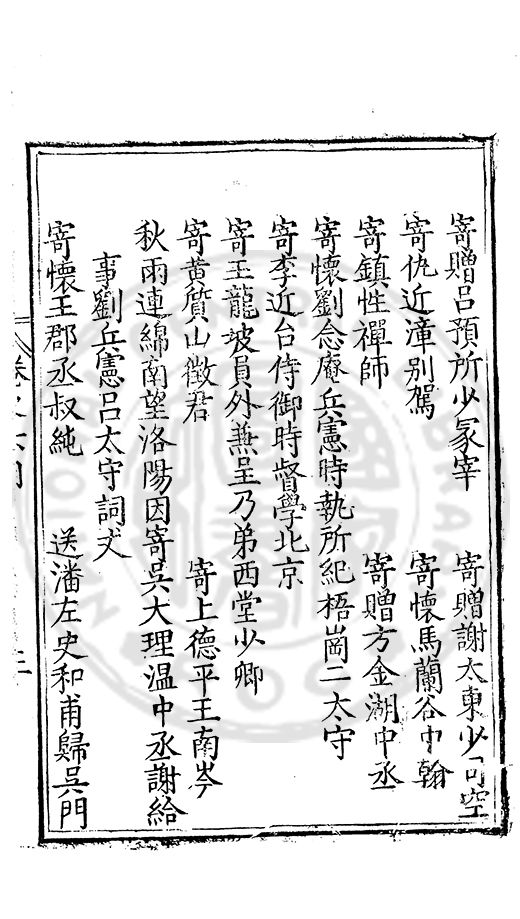 寄贈呂預所少冢宰　寄贈謝太東少司空
寄仇近漳别駕　寄懷馬蘭谷中翰
寄鎮性禪師　寄贈方金湖中丞
寄懷劉念庵兵憲時執所紀梧崗二太守
寄李近台侍御時督學北京
寄王龍坡員外兼呈乃弟西堂少卿
寄黄質山徵君　寄上德平王南岑
秋雨連綿南望洛陽因寄吳大理温中丞謝給
事劉兵憲呂太守詞丈
寄懷王郡丞叔純　送潘左史和甫歸吳門